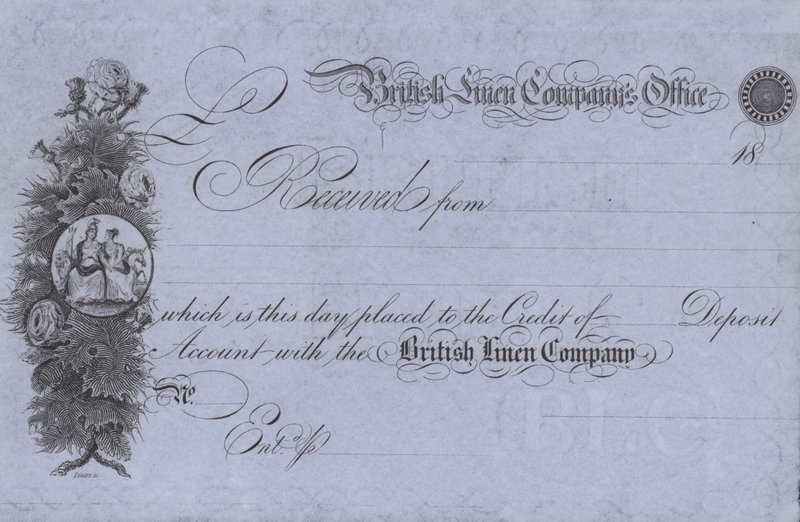 British Linen Company's Office
£
18
Received from
which is this day placed to the Credit of Deposit
Account with the British Linen Company
No.
Ent.d p
BLC